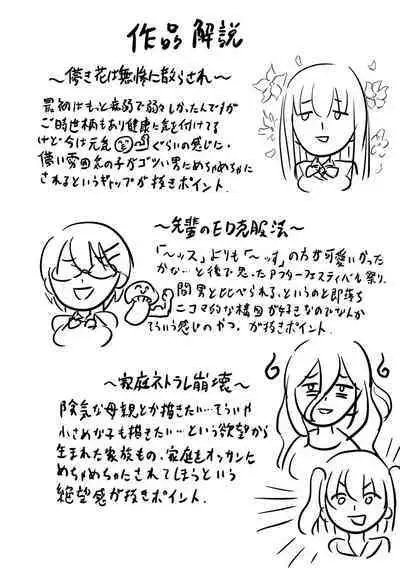 作品解説
～儚き花は無惨に散らされ～
最初はもっと病弱で弱々しかったんですが
ご時世柄もあり健康に気を付けてる
けど今は元気ぐらいの感じに。
儚い雰囲気の子がゴツい男にめちゃめちゃに
されるというギャップが抜きポイント。
～先輩のED克服法～
「～ッス」よりも「～っす」の方が可愛いかった
かな…と後で思ったアフターフェスティバル祭り。
間男と比べられる、というのと即落ち
ニコマ的な構図が好きなのでなんか
そういう感じのやつ。が抜きポイント.
～家庭ネトラレ崩壊～
陰気な母親とか描きたい…てういか
小さめな子も描きたい…という欲望から
生まれた家族もの、家庭をオッサンに
めちゃめちゃにされてしまうという
絶望感が抜きポイント.